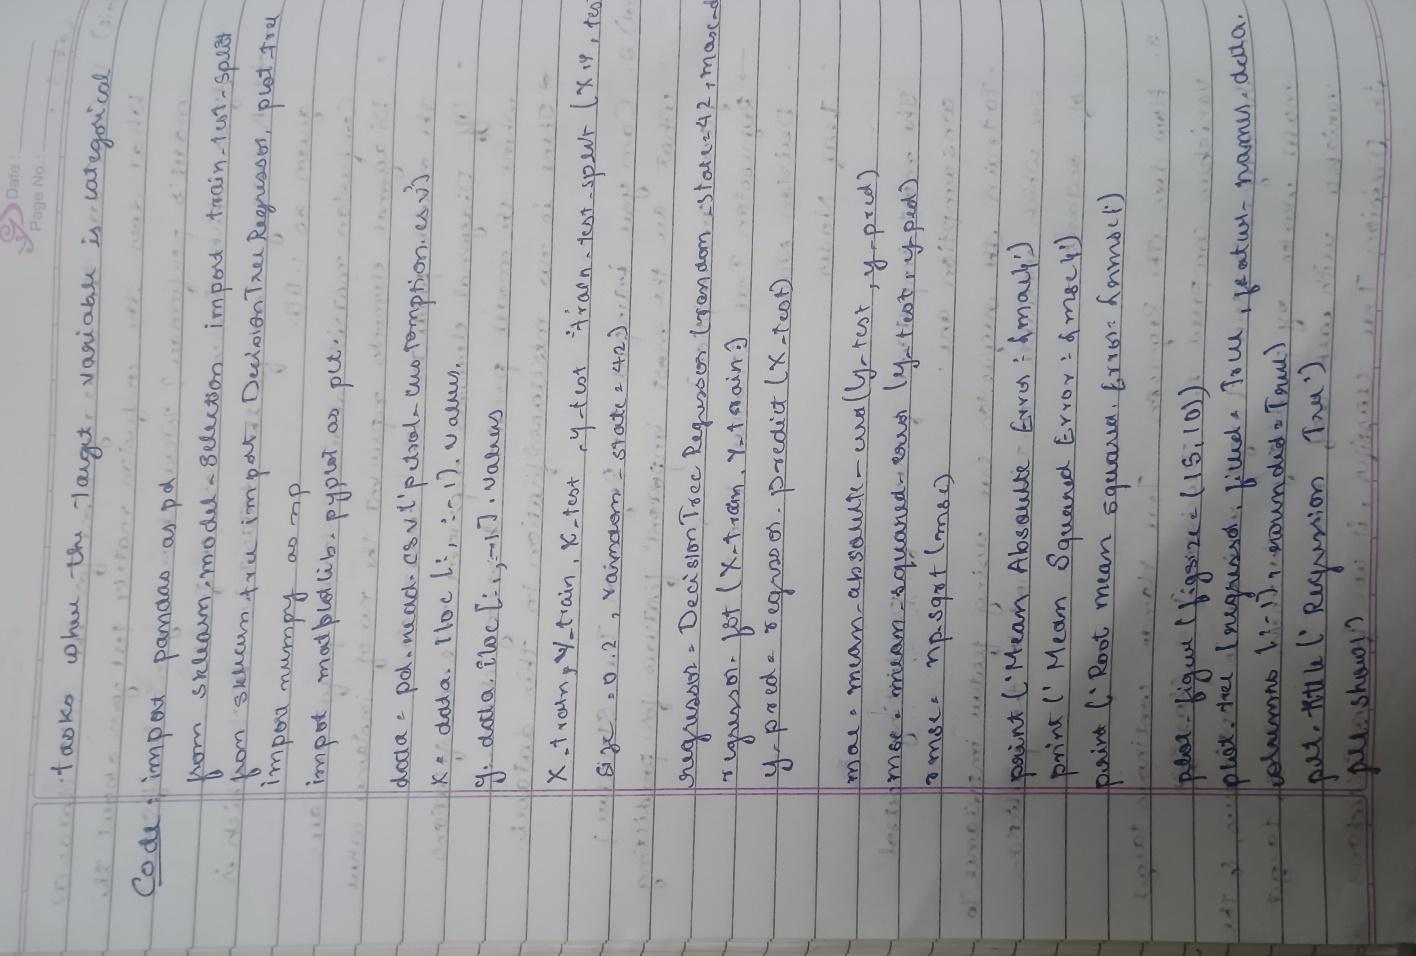 Date :
Page No :
tasks where the target variable is categorical
Code: import pandas as pd
from sklearn.model_selection import train-test-split
from sklearn tree import DecisionTreeRegressor, plot-tree
import numpy as np
import matplotlib.pyplot as plt.
data = pd.read_csv('petrol_consumption.csv')
X = data.iloc[:, :-1].values.
y = data.iloc[:, -1].values
X-train, y-train, X-test, y-test = train-test-split (X, y, test
size = 0.2, random-state = 42)
regressor = DecisionTreeRegressor (random-state = 42, max-d
regressor.fit (X-train, Y-train)
y-pred = regressor.predict (X-test)
mae = mean-absolute-error (y-test, y-pred)
mse = mean-squared-error (y-test, y-pred)
rmse = np.sqrt (mse)
print ('Mean Absolute Error: {mae}')
print ('Mean Squared Error: {mse}')
print ('Root mean squared Error: {rmse}')
plot.figure (figsize = (15, 10))
plot.tree (regressor, filled = True, feature-names = data.
columns [:-1], rounded = True)
plt.title ('Regression Tree')
plt.show()